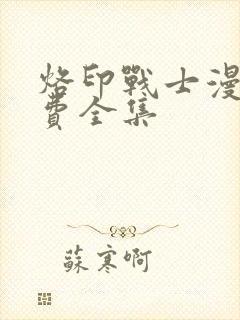 烙印戰士漫
費全集
蘇寒啊